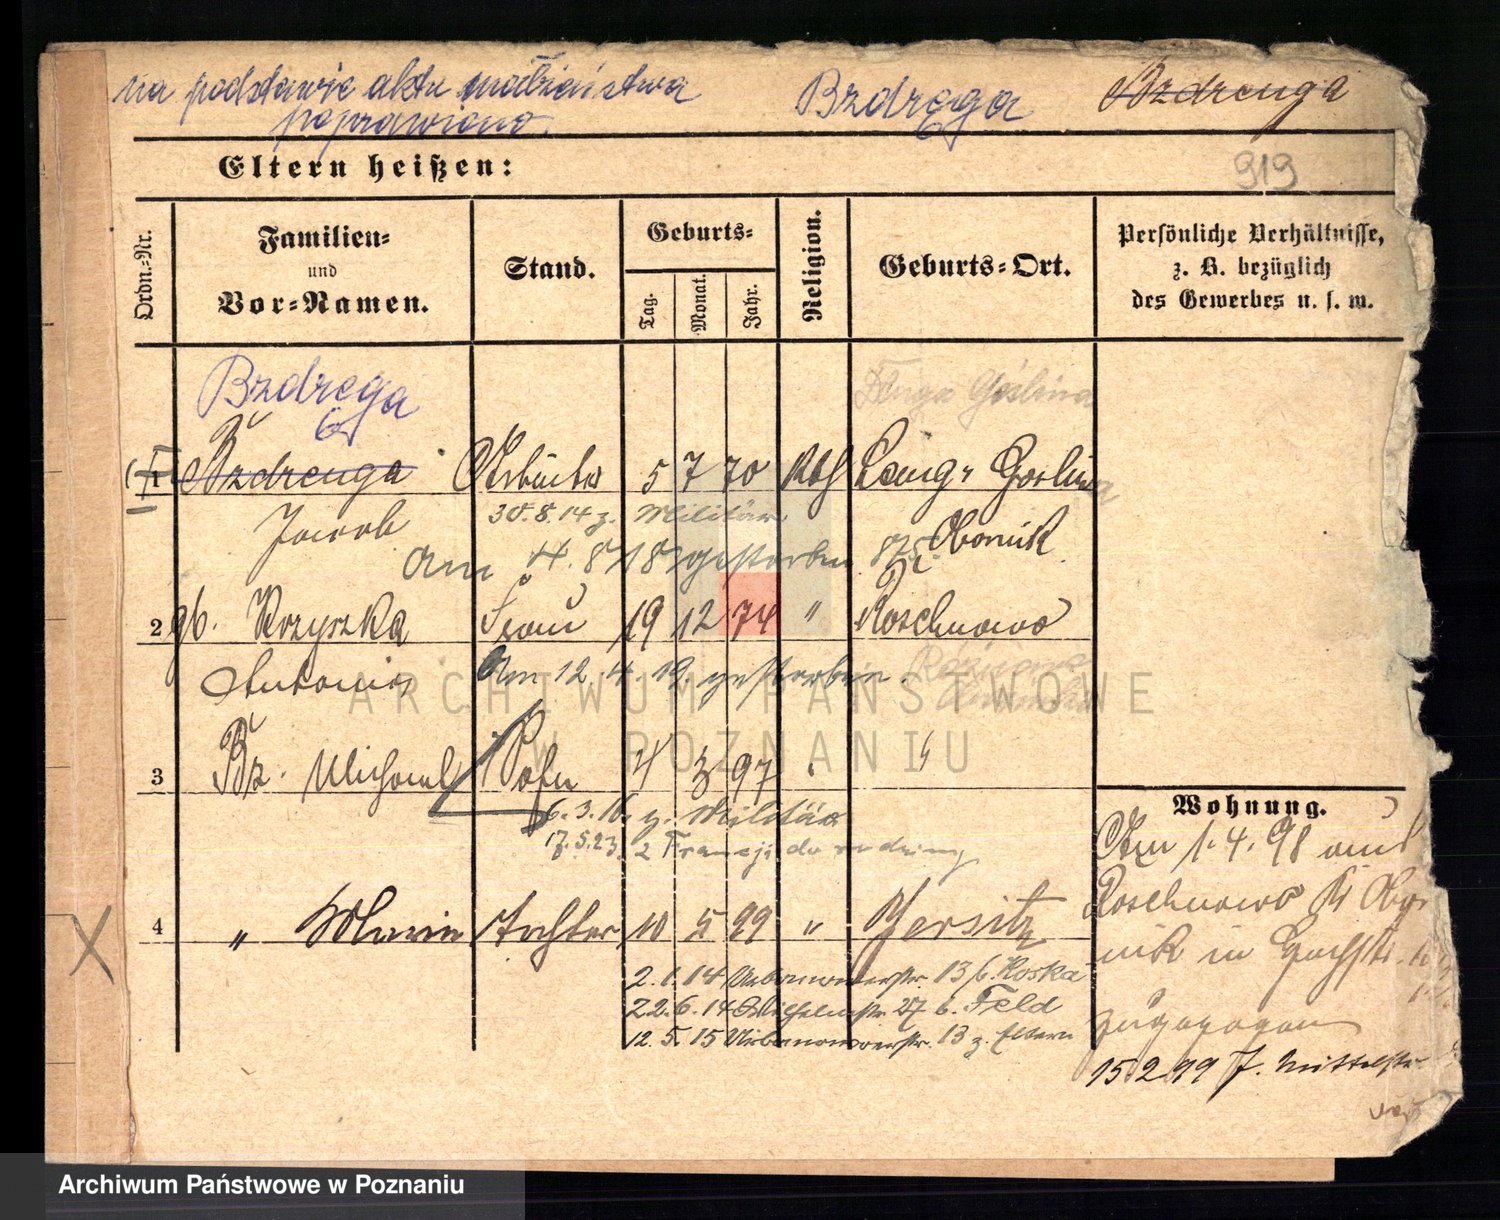 na podstawie aktu małżeństwa
poprawiono.
Bzdręga
Bzdrenga
919
Eltern heißen:
Ordn.-Nr.
Familien-
und
Vor-Namen.
Stand.
Geburts-
Tag.
Monat.
Jahr.
Religion.
Geburts-Ort.
Persönliche Verhältnisse,
z. B. bezüglich
des Gewerbes u. s. w.
Bzdręga
Długa Goślina
1 Bzdrenga Arbeiter 5 7 70 Kth Lang-Goslina
Jacob 30.8.14 z. Militär Obornik
Am 4.8.18 gestorben 875.
2 gb. Krzyszka Frau 19 12 74 " Roschnowo
Antonia Am 12.4.19. gestorben.
3 Bz. Michael Sohn 4 3 97
6.3.16. z. Militär
17.5.23. z Francji do rodziny
4 " Marie Tochter 10 5 99 " Jersitz
2.1.14 Urbanowoerstr. 13 b. Koska
22.6.14 Wilhelmstr. 27 b. Feld
12.5.15 Urbanowoerstr. 13 z. Eltern
Wohnung.
Am 1.4.98 aus
Roschnowo Kr Obor
nik in
zugezogen
15.2.99 J. Mittelstr.
ARCHIWUM PAŃSTWOWE
W POZNANIU
Archiwum Państwowe w Poznaniu